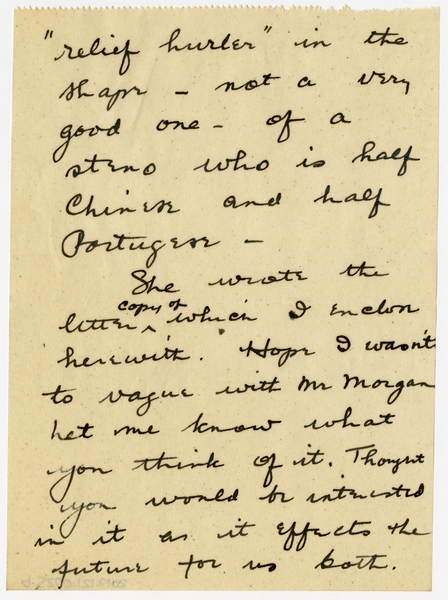 "relief hurler" in the
shape - not a very
good one - of a
steno who is half
Chinese and half
Portugese -
She wrote the
letter ^ copy of which I enclose
herewith. Hope I wasn't
to vague with Mr Morgan
Let me know what
you think of it. Thought
you would be interested
in it as it effects the
future for us both.